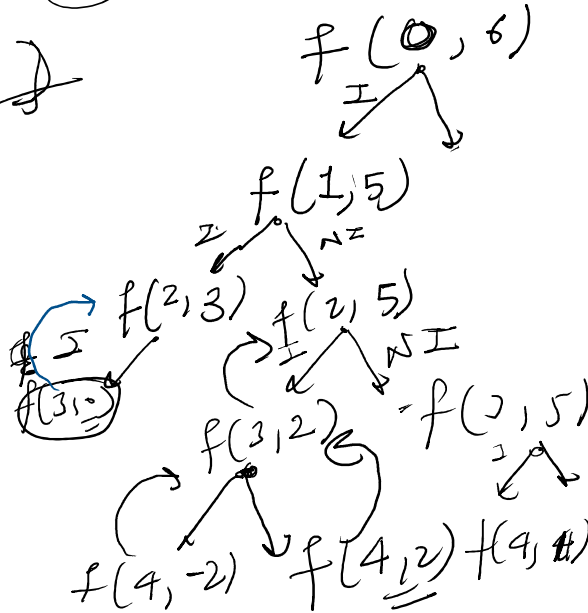 f(0, 6)
I
f(1, 5)
I NI
f(2, 3) f(2, 5)
I I NI
f(3, 0)
f(3, 2) f(3, 5)
I
f(4, -2) f(4, 2) f(4,